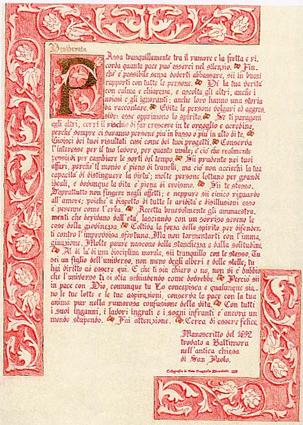 Desiderata
Passa tranquillamente tra il rumore e la fretta e ri-
corda quanta pace può esserci nel silenzio. Fin-
ché è possibile senza doverti abbassare, sii in buoni
rapporti con tutte le persone. Di la tua verità
con calma e chiarezza, e ascolta gli altri, anche i
noiosi e gli ignoranti; anche loro hanno una storia
da raccontare. Evita le persone volgari ed aggres-
sive: esse opprimono lo spirito. Se ti paragoni
agli altri, corri il rischio di far crescere in te orgoglio e acredine,
perché sempre ci saranno persone più in basso o più in alto di te.
Gioisci dei tuoi risultati così come dei tuoi progetti. Conserva
l'interesse per il tuo lavoro, per quanto umile; è ciò che realmente
possiedi per cambiare le sorti del tempo. Sii prudente nei tuoi
affari, perché il mondo è pieno di tranelli, ma ciò non accechi la tua
capacità di distinguere la virtù; molte persone lottano per grandi
ideali, e dovunque la vita è piena di eroismo. Sii te stesso.
Soprattutto non fingere negli affetti; e neppure sii cinico riguardo
all'amore; poiché a dispetto di tutte le aridità e disillusioni esso
è perenne come l'erba. Accetta benevolmente gli ammaestra-
menti che derivano dall'età, lasciando con un sorriso sereno le
cose della giovinezza. Coltiva la forza dello spirito per difender-
ti contro l'improvvisa sfortuna. Ma non tormentarti con l'imma-
ginazione. Molte paure nascono dalla stanchezza e dalla solitudine.
Al di là di una disciplina morale, sii tranquillo con te stesso. Tu
sei un figlio dell'universo, non meno degli alberi e delle stelle; tu
hai diritto ad essere qui. E che ti sia chiaro o no, non vi è dubbio
che l'universo ti si stia schiudendo come dovrebbe. Perciò sii
in pace con Dio, comunque tu Lo concepisca e qualunque sia-
no le tue lotte e le tue aspirazioni, conserva la pace con la tua
anima pur nella rumorosa confusione della vita. Con tutti
i suoi inganni, i lavori ingrati e i sogni infranti è ancora un
mondo stupendo. Fai attenzione. Cerca di essere felice.
Manoscritto del 1692
trovato a Baltimora
nell'antica chiesa
di San Paolo.